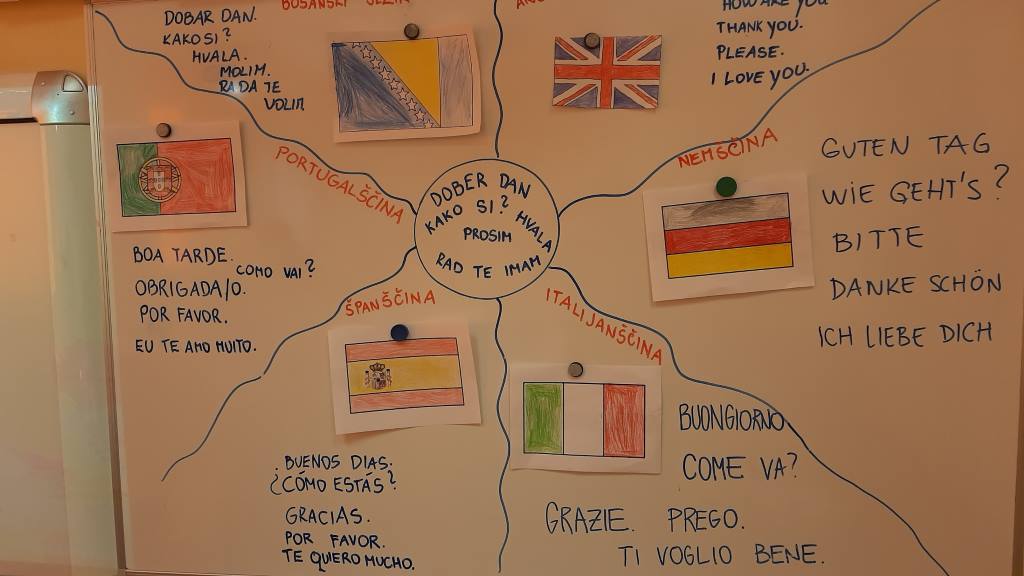 BOSANSKI JEZIK
DOBAR DAN.
KAKO SI?
HVALA.
MOLIM.
RADA TE
VOLIM
HOW ARE YOU
THANK YOU.
PLEASE.
I LOVE YOU.
PORTUGALŠČINA
BOA TARDE.
COMO VAI?
OBRIGADA/O.
POR FAVOR.
EU TE AMO MUITO.
DOBER DAN
KAKO SI? HVALA
PROSIM
RAD TE IMAM
NEMŠČINA
GUTEN TAG
WIE GEHT'S?
BITTE
DANKE SCHÖN
ICH LIEBE DICH
ŠPANŠČINA
BUENOS DIAS.
¿CÓMO ESTÁS?
GRACIAS.
POR FAVOR.
TE QUIERO MUCHO.
ITALIJANŠČINA
BUONGIORNO
COME VA?
GRAZIE. PREGO.
TI VOGLIO BENE.